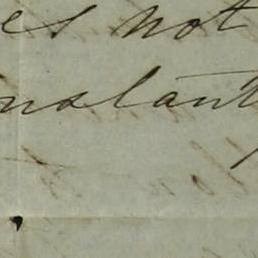 es not
nstant